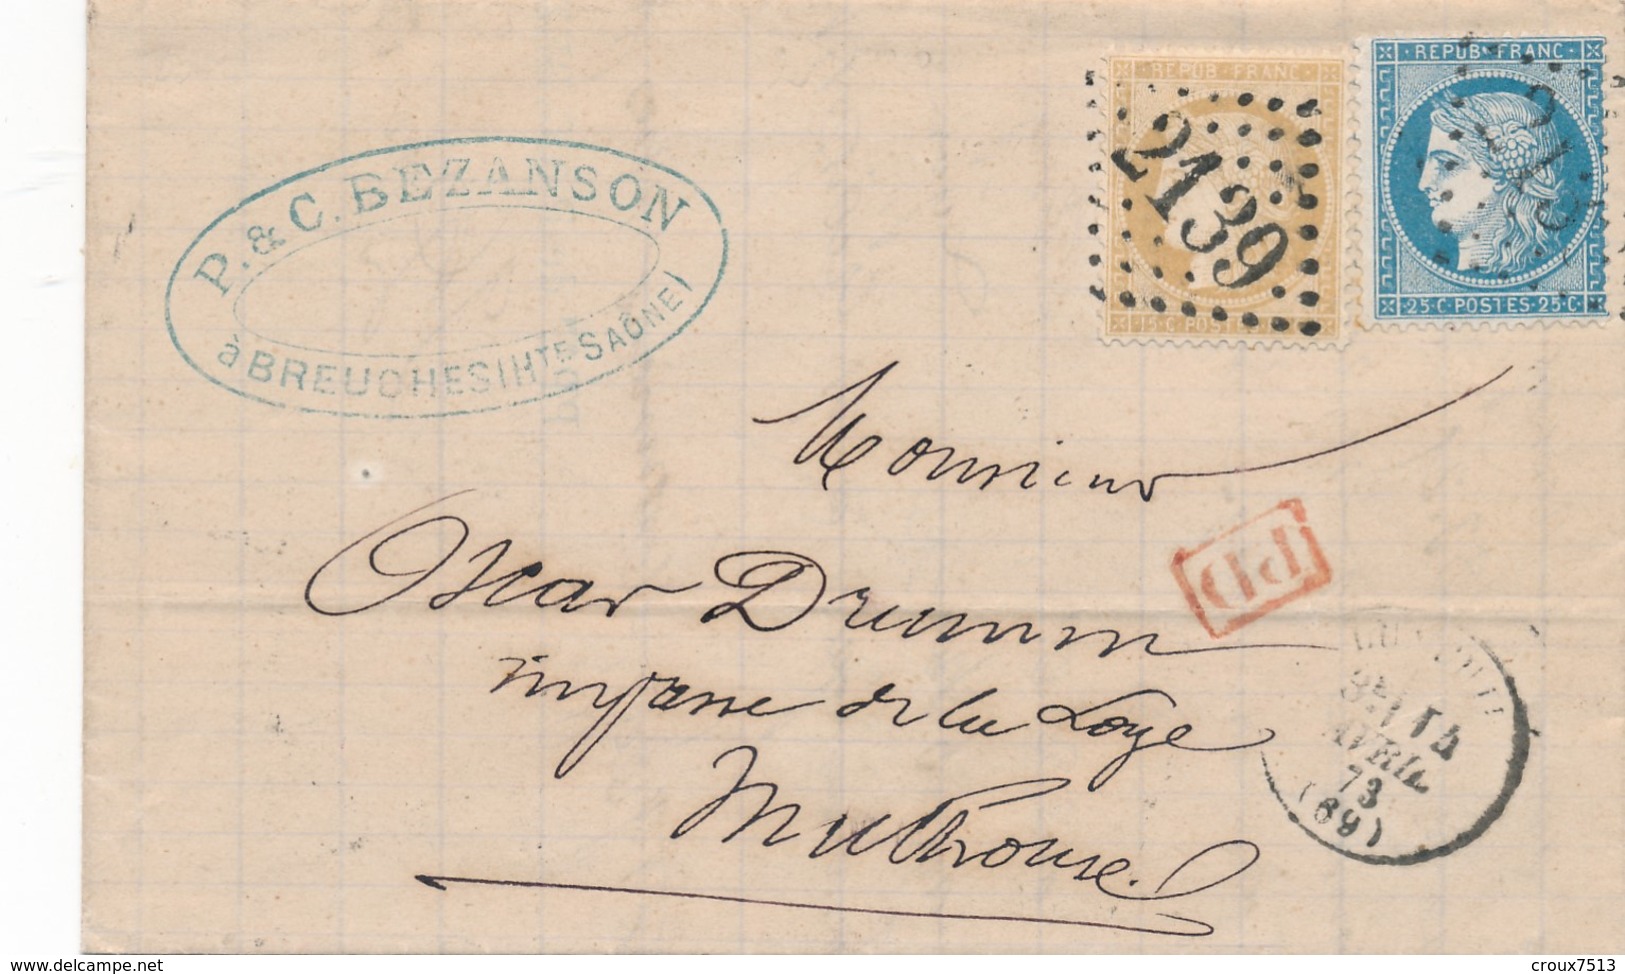 P. & C. BEZANSON
à BREUCHES (HTE SAÔNE)
REPUB·FRANC
15·C·POSTES
2139
REPUB·FRANC
25·C·POSTES·25·C
Monsieur
Oscar Dreumm
impasse de la Loge
Mulhouse
PD
14
AVRIL
73
(69)
delcampe.net
croux7513